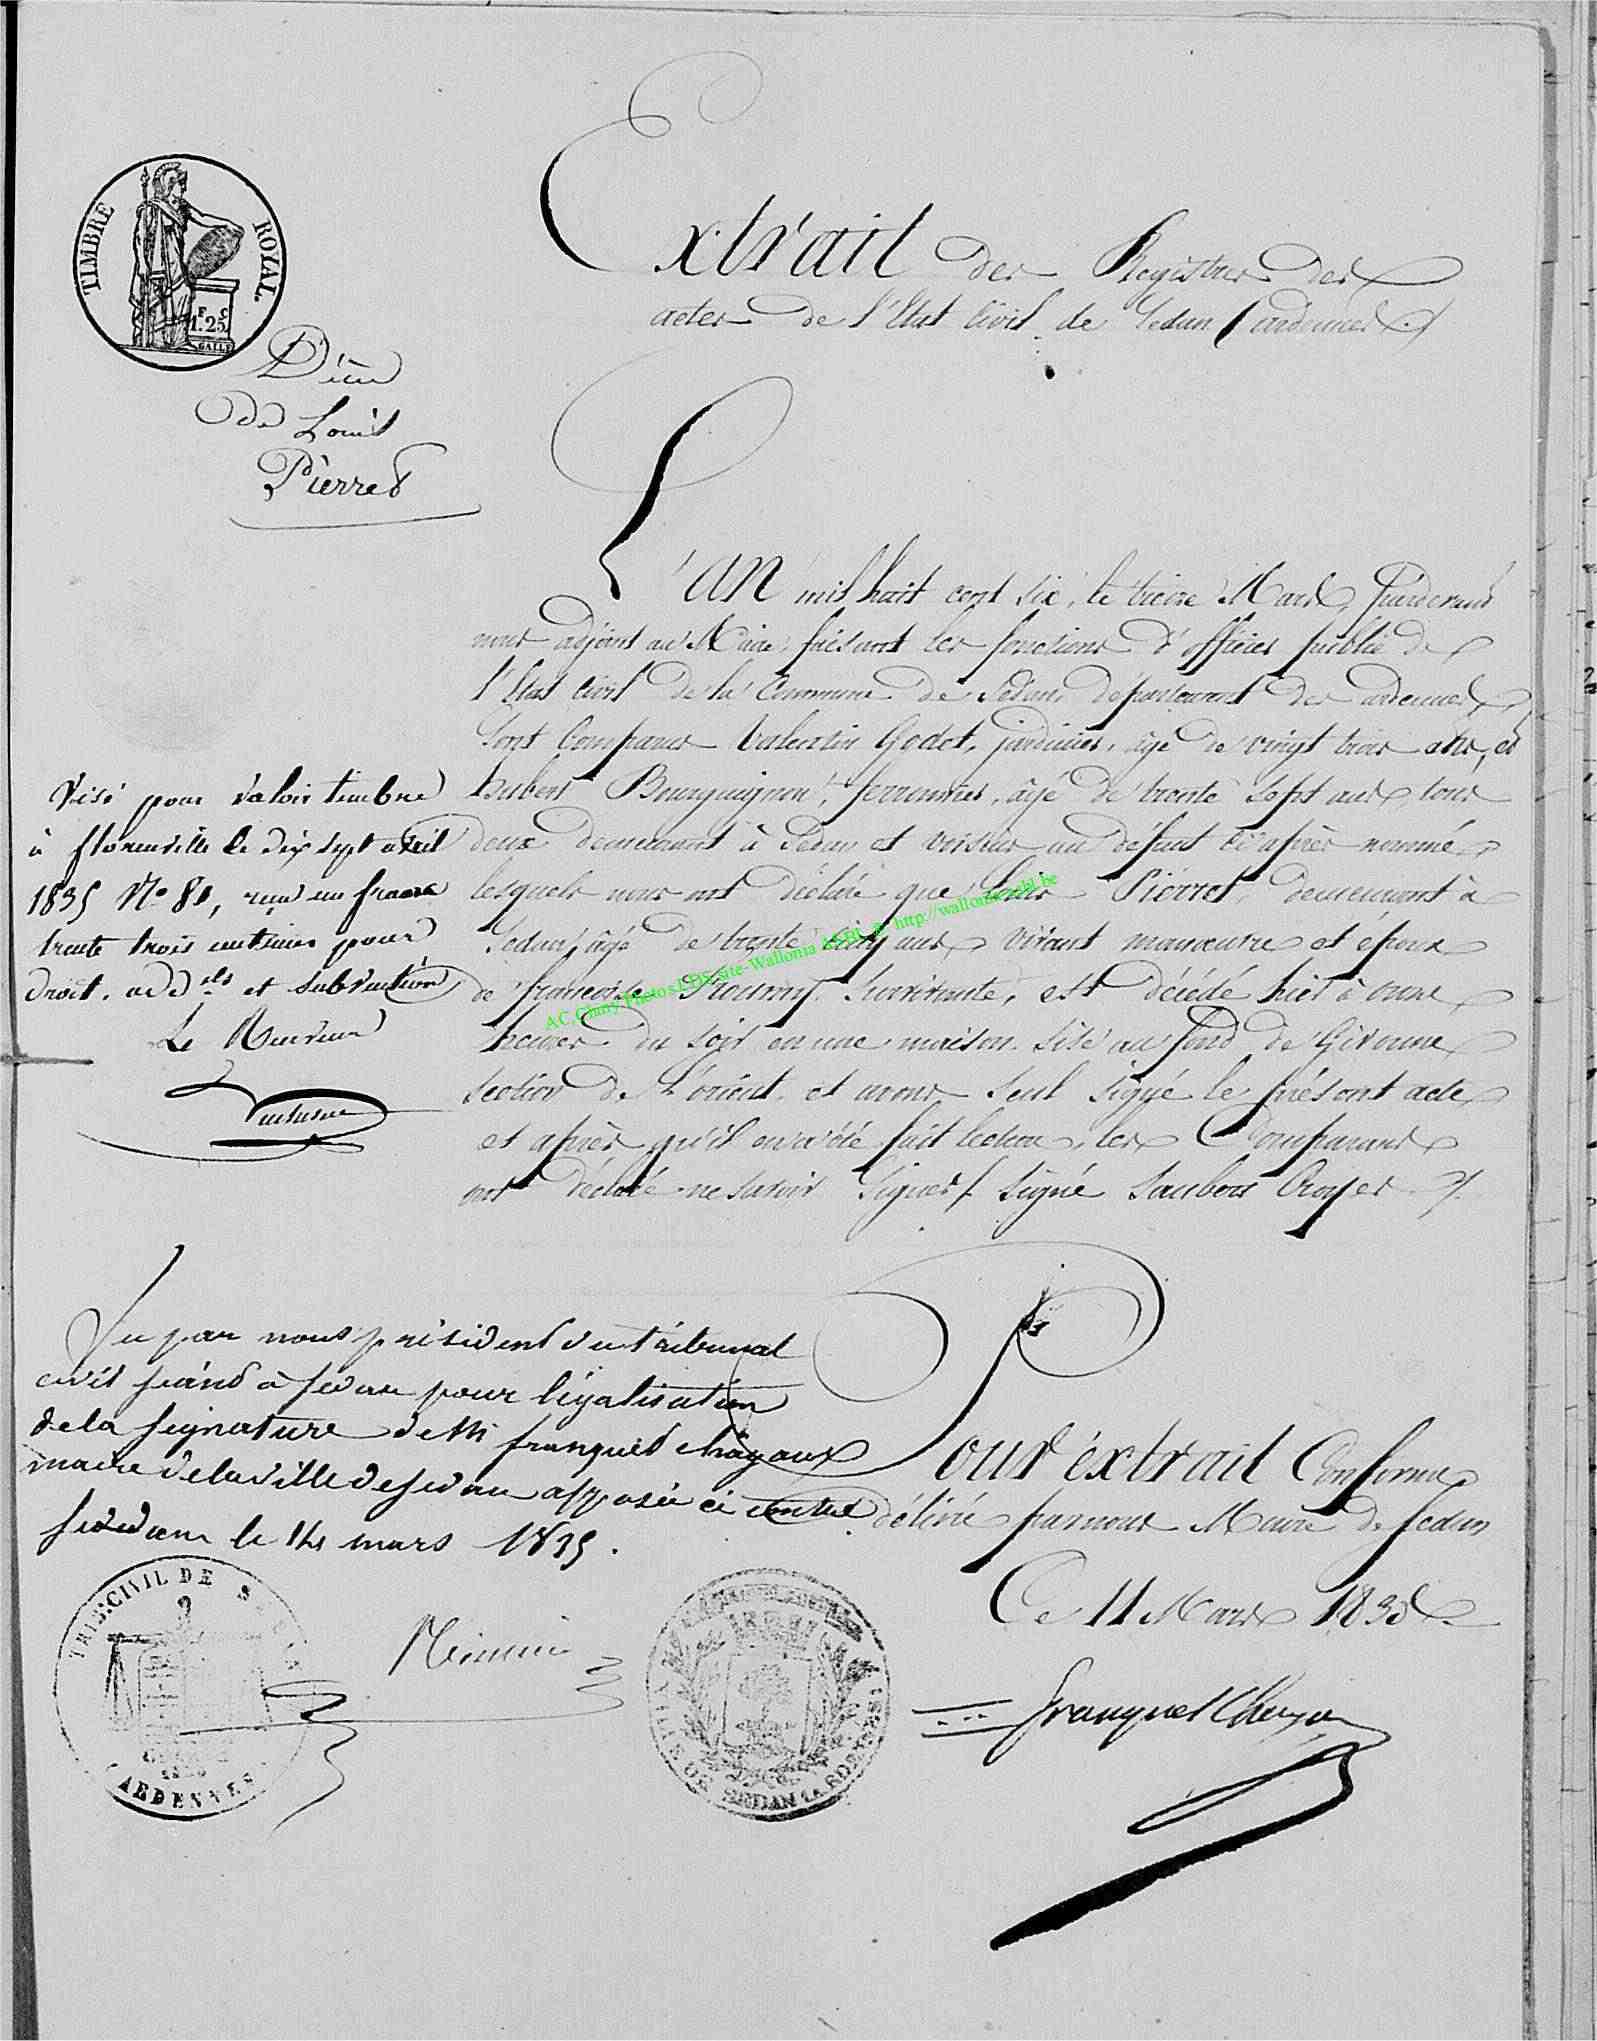 TIMBRE ROYAL
F C
1.25
GALLE
Extrait des Registres des
actes de l'Etat Civil de Sedan (ardennes) ./
Décès
de Louis
Pierret
L'an mil huit cent six, le treize Mars, Pardevant
nous adjoint au Maire faisant les fonctions d'officier public de
l'Etat Civil de la Commune de Sedan département des ardennes,
Sont Comparus Valentin Godet, jardinier, âgé de vingt trois ans, et
hubert Bourguignon, ferronnier, âgé de trente sept ans, tous
deux demeurant à Sedan et voisins au défunt ci après nommé,
lesquels nous ont déclaré que Louis Pierret, demeurant à
Sedan, âgé de trente cinq ans, vivant manœuvre et époux
de françoise survivante, est décédé hier à onze
heures du soir en une maison sise au fond de Givonne
section de l'orient, et avons seul signé le présent acte
et après qu'il en a été fait lecture, les Comparans
ont déclaré ne savoir Signer /. signé Saubois Royer ./.
Visé pour valoir timbre
à florenville le dix sept avril
1835 No 80, reçu un franc
trente trois centimes pour
droit. addels et subvention
Le Receveur
AC Chiny Photos LDS site-Wallonia ASBL @ http://wallonia-asbl.be
Vu par nous président du tribunal
civil séant à sedan pour légalisation
de la signature de Mr franquet chayaux
maire de la ville de sedan apposée ci contre
sedan le 14 mars 1835.
Pour éxtrait Conforme
délivré par nous Maire de Sedan
Ce 11 Mars 1835
TRIB. CIVIL DE SEDAN
(ARDENNES)
VILLE DE SEDAN (ARDENNES)
franquet Chayaux